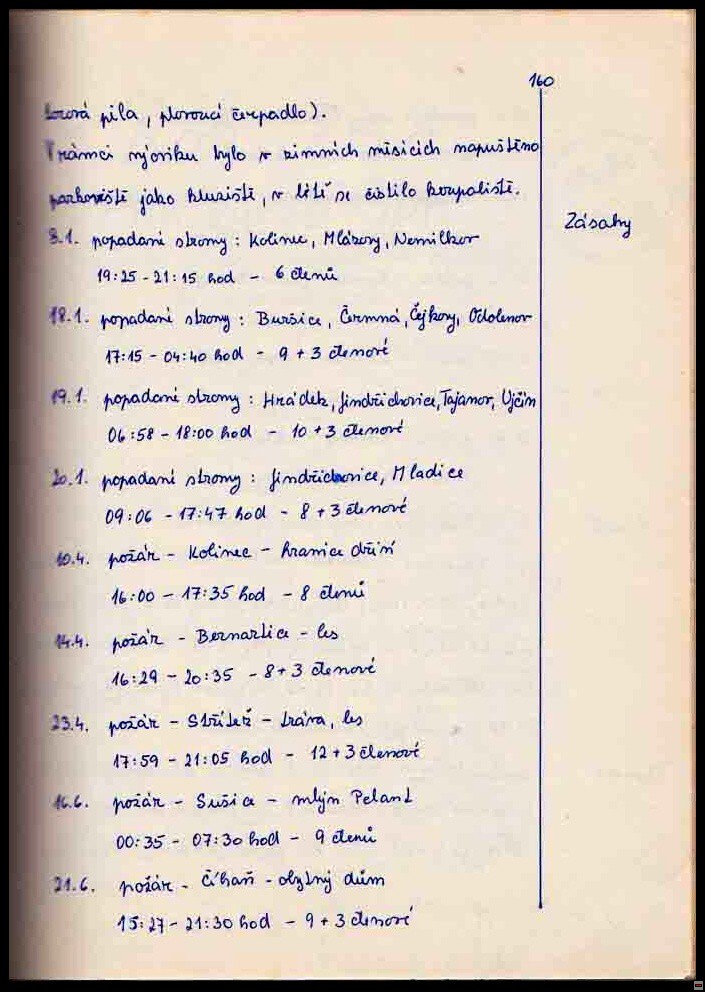 160
pila, plovoucí čerpadlo).
V rámci výcviku bylo v zimních měsících napuštěno
parkoviště jako kluziště, v létě se čistilo koupaliště.
Zásahy
8.1. popadané stromy : Kolinec, Mlázovy, Nemilkov
19:25 - 21:15 hod - 6 členů
18.1. popadané stromy : Buršice, Čermná, Čejkovy, Odolenov
17:15 - 04:40 hod - 9 + 3 členové
19.1. popadané stromy : Hrádek, Jindřichovice, Tajanov, Ujčín
06:58 - 18:00 hod - 10 + 3 členové
20.1. popadané stromy : Jindřichovice, Mladice
09:06 - 17:47 hod - 8 + 3 členové
10.4. požár - Kolinec - hranice dříví
16:00 - 17:35 hod - 8 členů
14.4. požár - Bernartice - les
16:29 - 20:35 - 8 + 3 členové
23.4. požár - Střítež - tráva, les
17:59 - 21:05 hod - 12 + 3 členové
16.6. požár - Sušice - mlýn Pelant
00:35 - 07:30 hod - 9 členů
21.6. požár - Číhaň - obytný dům
15:27 - 21:30 hod - 9 + 3 členové